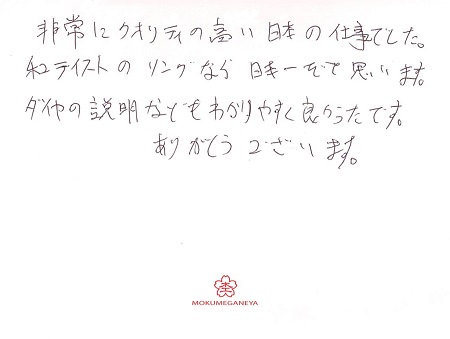 非常にクオリティの高い日本の仕事でした。
和テイストのリングなら日本一だと思います。
ダイヤの説明などもわかりやすく良かったです。
ありがとうございます。
杢
MOKUMEGANEYA